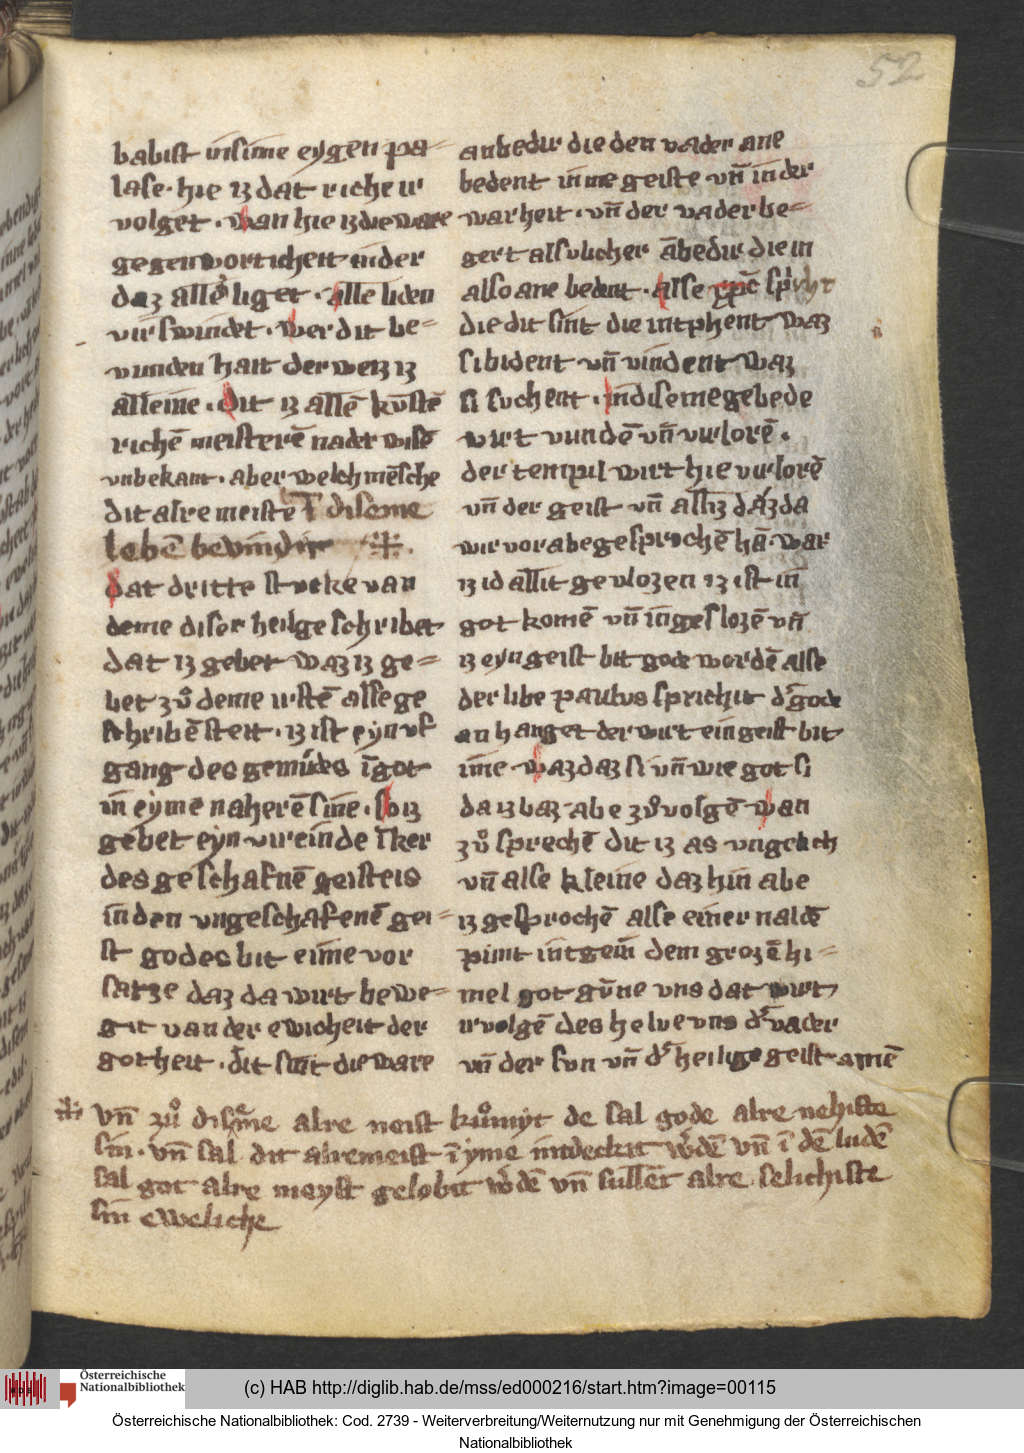 52
babist in sime eygen pa=
lase · hie iz dat riche ir
volget · wan hie iz die ware
gegenworticheit in der
daz allē liget · alle liden
virswindet · wer dit be=
vunden hait der weiz iz
alleine · dit iz allē kūstē
richē meisterē nader wisē
unbekant · aber welch mēsche
dit alre meiste ī diseme
lebē bevindit
dat dritte stucke van
deme diser heilge schribet
dat iz gebet waz iz ge=
bet zuͦ deme irstē alse ge
schribē steit · iz ist eyn uf
gang des gemudes ī got
in eyme naherē sine · so iz
gebet eyn vireinde
des geschafnē geisteis
in den ungeschafenē gei=
st godes bit eime vor
satze daz da wirt bewe=
git van der ewicheit der
gotheit · dit sint die ware
anbedir die den vader ane
bedent in me geiste uñ in der
warheit · uñ der vader be=
gert alsulicher ābedir die in
also ane bedent · alse xp̄c spricht
die dit sint die intphent waz
si bident uñ vindent waz
si suchent · in diseme gebede
wirt vundē uñ virlorē ·
der tempil wirt hie virlorē
uñ der geist uñ alliz daz da
wir vor abe gesprochē hā · war
iz id allit gevlozen iz ist in
got komē uñ in geslozē uñ
iz eyn geist bit gode wordē alse
der libe paulus sprichit d' gode
an hanget der wirt ein geist bit
ime · waz daz si uñ wie got si
da iz baz abe zuͦ volgē · wan
zuͦ sprechē dit iz as ungelich
uñ alse kleine daz hin abe
iz gesprochē alse einer naldē
pint intgein dem grozē hi=
mel got gūne uns dat wirt
irvolgē des helve uns d' vader
uñ der sun uñ d' heilige geist amē
uñ zuͦ diseme alre neist kuͦmyt de sal gode alre nehiste
sin · uñ sal dit alremeist ī yme intdeckit w'dē uñ ī dē lidē
sal got alre meyst gelobit w'dē uñ sullēt alre selichiste
sin eweliche
Österreichische
Nationalbibliothek
(c) HAB http://diglib.hab.de/mss/ed000216/start.htm?image=00115
Österreichische Nationalbibliothek: Cod. 2739 - Weiterverbreitung/Weiternutzung nur mit Genehmigung der Österreichischen
Nationalbibliothek